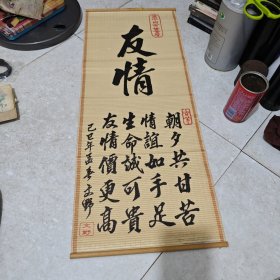 友情
朝夕共甘苦
情誼如手足
生命誠可貴
友情價更高
己巳年孟春文野